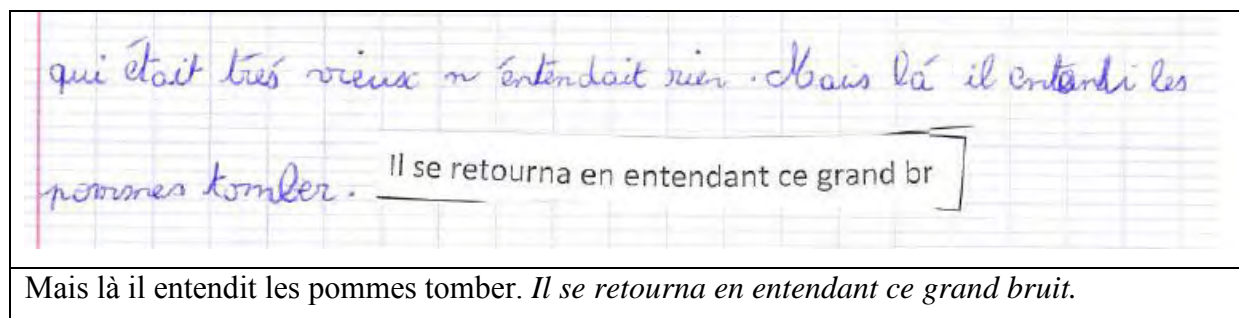 qui était trés vieux n'entendait rien. Mais lá il entendi les
pommes tomber. Il se retourna en entendant ce grand br
Mais là il entendit les pommes tomber. Il se retourna en entendant ce grand bruit.